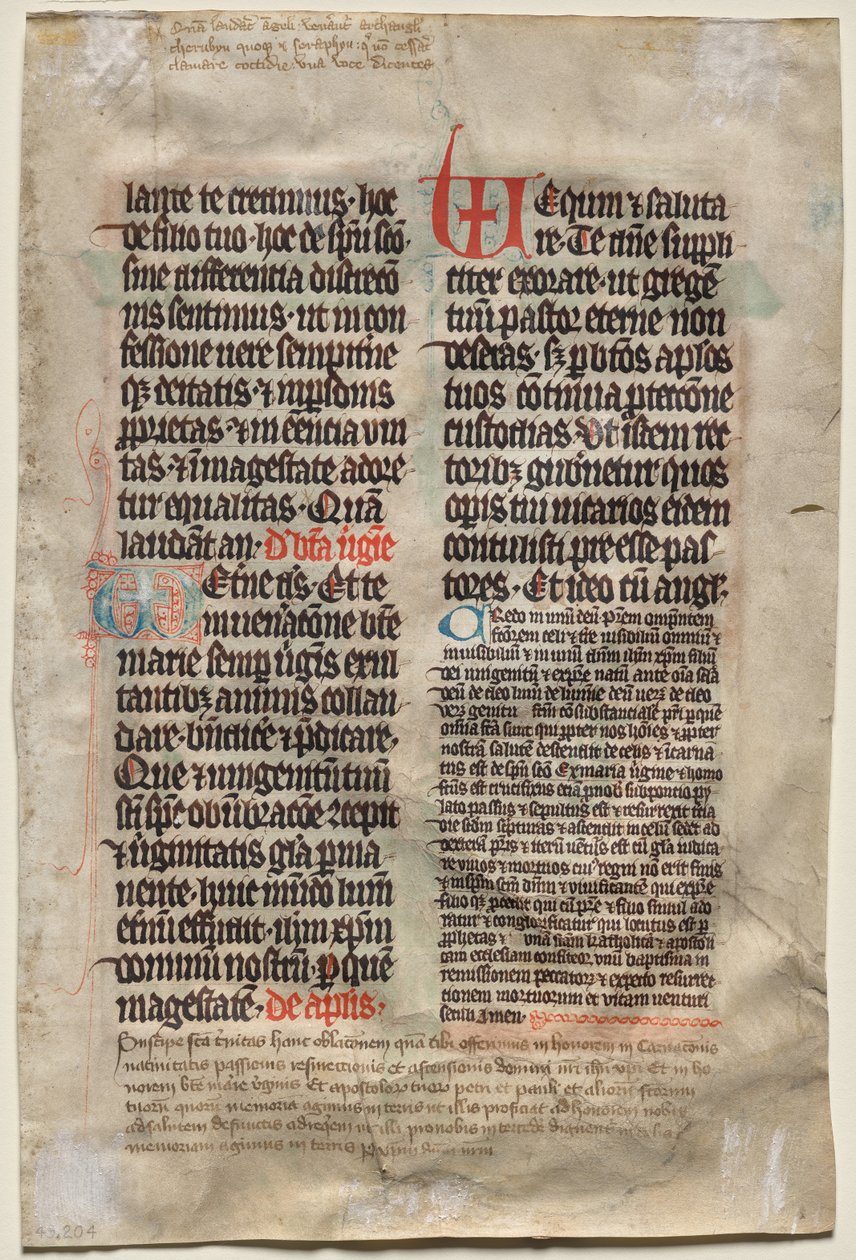 Quā laudāt āgeli venerāt archangli
cherubyn quoqꝫ ⁊ seraphyn: q̄ nō cessāt
clamare cottidie vna voce dicentes
lante te credimus· hoc
de filio tuo· hoc de sp̄u sc̄o·
sine differentia discretō
nis sentimus· ut in con
fessione uere sempitn̄e
qꝫ deitatis· ⁊ in p̱sonis
ꝓprietas· ⁊ in eēncia vni
tas· ⁊ ī magestate adore
tur equalitas· Quā
laudāt an· D' bt̄a ūgīe
VEtn̄e ds̄· Et te
in uenȧtōne bt̄e
marie semꝑ ūgīs exul
tantibꝫ animis collau
dare· bn̄dicˈe ⁊ p̄dicare·
Que ⁊ unigenitū tuū
sc̄i sp̄c obūbracōe ɔcepit
⁊ ūginitatis glˈa ꝑma
nente· huic mūdo lum̄
et̄nū effudit· ih̄m xp̄m
dominū nostrū· ꝑ quē
magestatē· De aplˈis·
VEqum ⁊ saluta
re· Te dn̄e suppli
citer exorare· ut gregē
tuū pastor eterne non
deseras· sꝫ ꝑ bt̄os aplˈos
tuos cōtinua ꝓtectōne
custodias· Ut iˈsdem rec
toribꝫ gubˈnetur quos
oꝑis tui uicarios eidem
contulisti preesse pas
tores· Et ideo cū anglˈ·
CRedo in unū deū pˈrem omīpntem
fc̄torem celi ⁊ tˈre uisibiliū omniū ⁊
inuisibiliū ⁊ in unū dnm̄ ih̄m xp̄m filiū
dei unigenitū ⁊ ex pr̄e natū ante oīa sclˈa
deū de deo lum̄ de lumīe deū uerū de deo
vero genitū fc̄m cōsubstancialē pr̄i ꝑ quē
omīa fc̄a sunt qui ꝓpter nos hoīes ⁊ ꝓpter
nostrā salutē descendit de celis ⁊ īcarna
tus est de sp̄u sc̄o Ex maria ūgine ⁊ homo
fc̄us est crucifixus eciā p̄ nob̄ sub poncio py
lato passus ⁊ sepultus est ⁊ resurrexit tˈcia
die scd̄m sc̄pturas ⁊ ascendit in celū sedet ad
dexterā pr̄is ⁊ iterū uentˈus est cū glˈa iudica
re viuos ⁊ mortuos cuiˈ regni nō erit finis
⁊ in sp̄m sc̄m dn̄m ⁊ viuificantē qui ex pr̄e
filio qꝫ ꝓcedit qui cū pr̄e ⁊ filio simul ado
ratur ⁊ conglorificatur qui locutus est ꝑ
ꝓphetas ⁊ vnā sc̄am katholicā ⁊ apostoli
cam ecclesiam confiteor vnū baptisma in
remissionem peccatorꝝ ⁊ expecto resurrec
tionem mortuorum et vitam uenturi
seculi Amen·
Suscipe sc̄a tˈnitas hanc oblacōnem quā tibi offerimus in honorem in Carnacōnis
natiuitatis passionis resurrectionis et ascensionis domini nrī ihū xpī Et in ho
norem bt̄e mar̄ie vˈginis Et apostolorꝝ tuorꝝ petri et pauli et aliorū sc̄torum
tuorū quorū memoriā agimus in terris ut illis proficiat ad honorem nobis
ad salutem defunctis ad requiem ut illi pro nobis intercede dignent̄
memoriam agimus in terris p xp̄m dūm nr̄m
43.204